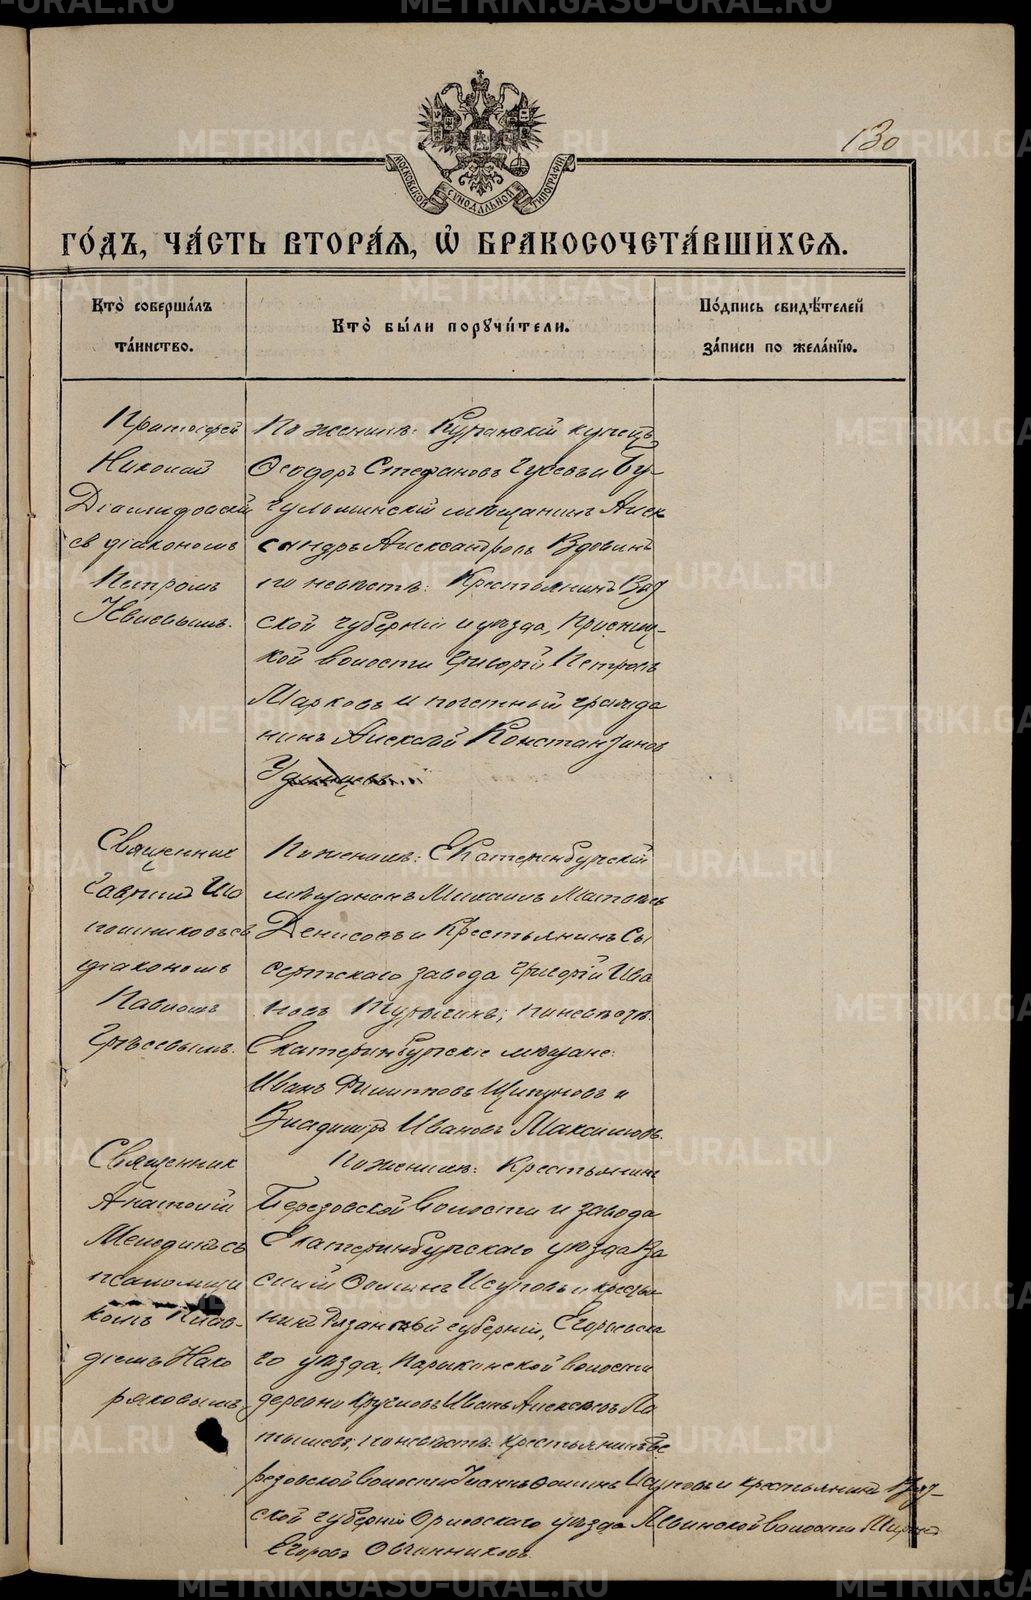 METRIKI.GASO-URAL.RU
130
МОСКОВСКОЙ СѴНОДАЛЬНОЙ ТИПОГРАФІИ
ГО́ДЪ, ЧА́СТЬ ВТОРА́Я, Ѡ҆ БРАКОСОЧЕТА́ВШИХСЯ.
Кто̀ соверша́лъ
та́инство.
Кто̀ бы́ли порꙋчи́тели.
По́дпись свидѣ́телей
за́писи по жела́нїю.
Протоіерей
Николай
Діомидовскій
съ діакономъ
Петромъ
По женихѣ: купецъ
Ѳеодоръ Стефановъ Гусевъ и Бу-
гульминскій мѣщанинъ Алек
сандръ Александровъ Вдовинъ
по невѣстѣ: Крестьянинъ Вят
ской губерніи и уѣзда,
кой волости Григорій Петровъ
Марковъ и почетный гражда
нинъ Алексѣй Константиновъ
Священникъ
Гавріилъ Ша
пошниковъ съ
діакономъ
Павломъ
По женихѣ: Екатеринбургскій
мѣщанинъ Михаилъ
Денисовъ и Крестьянинъ Сы
сертскаго завода Григорій Ива
новъ по невѣстѣ:
Екатеринбургскіе мѣщане:
Иванъ Филипповъ Щипуновъ и
Владиміръ Ивановъ Максимовъ.
Священникъ
Анатолій
съ
псаломщи
комъ Клав-
діемъ Нако
ряковымъ
По женихѣ: Крестьянинъ
Березовской волости и завода
Екатеринбургскаго уѣзда Ва
силій Ѳоминъ Исуповъ и крестья
нинъ Рязанской губерніи, Егорьевска
го уѣзда, волости
деревни Иванъ Алексѣевъ Ла
тышевъ, по невѣстѣ: крестьянинъ Бе
резовской волости Іоаннъ Ѳоминъ Исуповъ и крестьянинъ Вят-
ской губерніи Орловскаго уѣзда волости
Егоровъ Овчинниковъ.